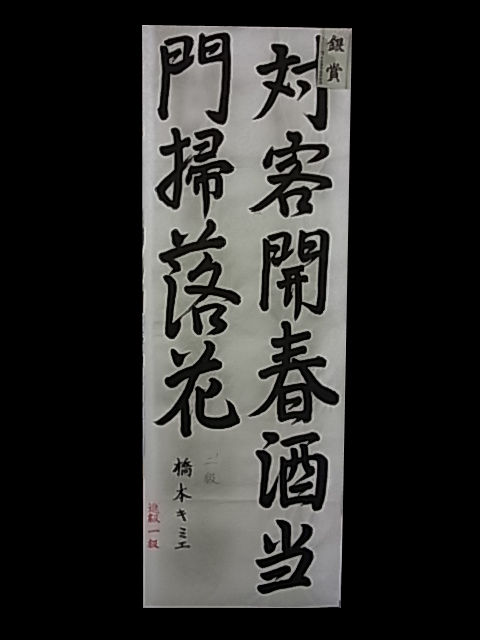 銀賞
対客開春酒当
門掃落花
二級
橋本キミエ
進級一級